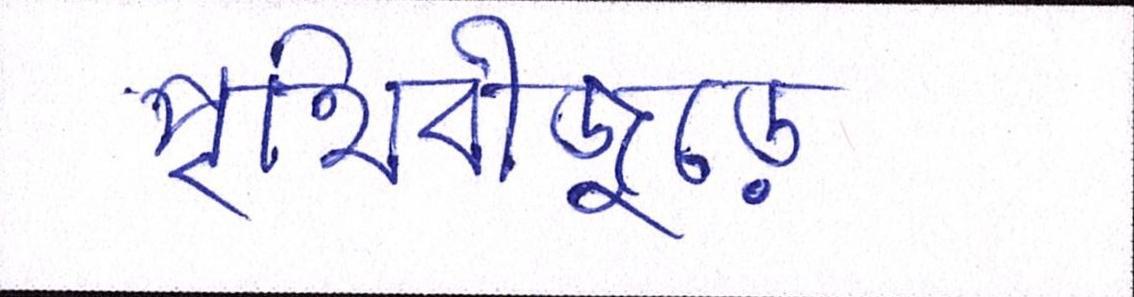 পৃথিবীজুড়ে